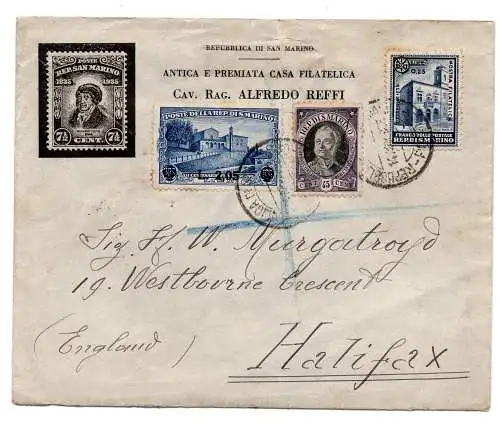 REPUBBLICA DI SAN MARINO
ANTICA E PREMIATA CASA FILATELICA
CAV. RAG. ALFREDO REFFI
POSTE
REP. SAN MARINO
1835 1935
7½ 7½
CENT.
POSTE DELLA REP. DI S. MARINO
2,05
75 CENT
0,25
FRANCOBOLLO POSTALE
REP. DI S. MARINO
Sig. H. W. Murgatroyd
19. Westbourne Crescent
(England)
Halifax